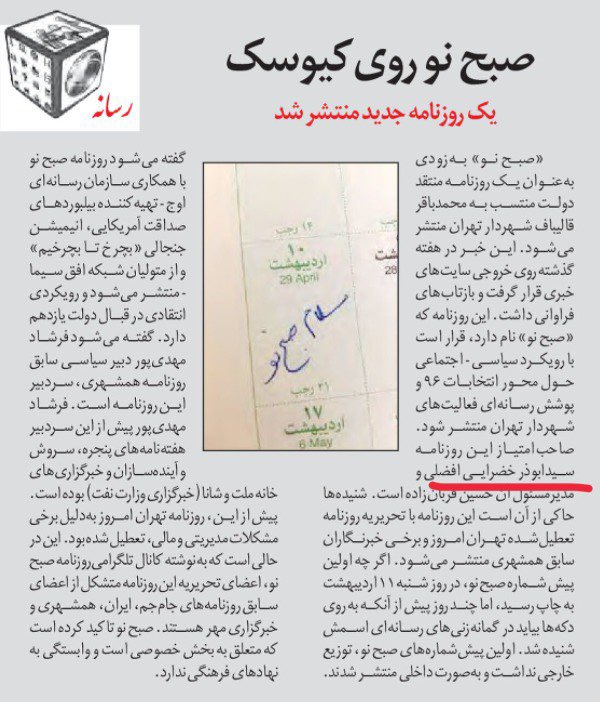 رسانه
صبح نو روی کیوسک
یک روزنامه جدید منتشر شد
«صبح نو» به‌زودی
به‌عنوان یک روزنامه منتقد
دولت منتسب به محمدباقر
قالیباف شهردار تهران منتشر
می‌شود. این خبر در هفته
گذشته روی خروجی سایت‌های
خبری قرار گرفت و بازتاب‌های
فراوانی داشت. این روزنامه که
«صبح نو» نام دارد، قرار است
با رویکرد سیاسی - اجتماعی
حول محور انتخابات ۹۶ و
پوشش رسانه‌ای فعالیت‌های
شهردار تهران منتشر شود.
صاحب امتیاز این روزنامه
سیدابوذر خضرایی افضلی و
مدیرمسئول آن حسین قربان‌زاده است. شنیده‌ها
حاکی از آن است این روزنامه با تحریریه روزنامه
تعطیل‌شده تهران امروز و برخی خبرنگاران
سابق همشهری منتشر می‌شود. اگر چه اولین
پیش شماره صبح نو، در روز شنبه ۱۱ اردیبهشت
به چاپ رسید، اما چند روز پیش از آنکه به روی
دکه‌ها بیاید در گمانه‌زنی‌های رسانه‌ای اسمش
شنیده شد. اولین پیش‌شماره‌های صبح نو، توزیع
خارجی نداشت و به‌صورت داخلی منتشر شدند.
گفته می‌شود روزنامه صبح نو
با همکاری سازمان رسانه‌ای
اوج - تهیه کننده بیلبوردهای
صداقت آمریکایی، انیمیشن
جنجالی «بچرخ تا بچرخیم»
و از متولیان شبکه افق سیما
- منتشر می‌شود و رویکردی
انتقادی در قبال دولت یازدهم
دارد. گفته می‌شود فرشاد
مهدی‌پور دبیر سیاسی سابق
روزنامه همشهری، سردبیر
این روزنامه است. فرشاد
مهدی‌پور پیش از این سردبیر
هفته‌نامه‌های پنجره، سروش
و آینده‌سازان و خبرگزاری‌های
خانه ملت و شانا (خبرگزاری وزارت نفت) بوده است.
پیش از این، روزنامه تهران امروز به‌دلیل برخی
مشکلات مدیریتی و مالی، تعطیل شده بود. این در
حالی است که به‌نوشته کانال تلگرامی روزنامه صبح
نو، اعضای تحریریه این روزنامه متشکل از اعضای
سابق روزنامه‌های جام‌جم، ایران، همشهری و
خبرگزاری مهر هستند. صبح نو تاکید کرده است
که متعلق به بخش خصوصی است و وابستگی به
نهادهای فرهنگی ندارد.
۱۴ رجب
۱۰
اردیبهشت
29 April
28
سلام صبح نو
۲۱ رجب
۱۷
اردیبهشت
6 May